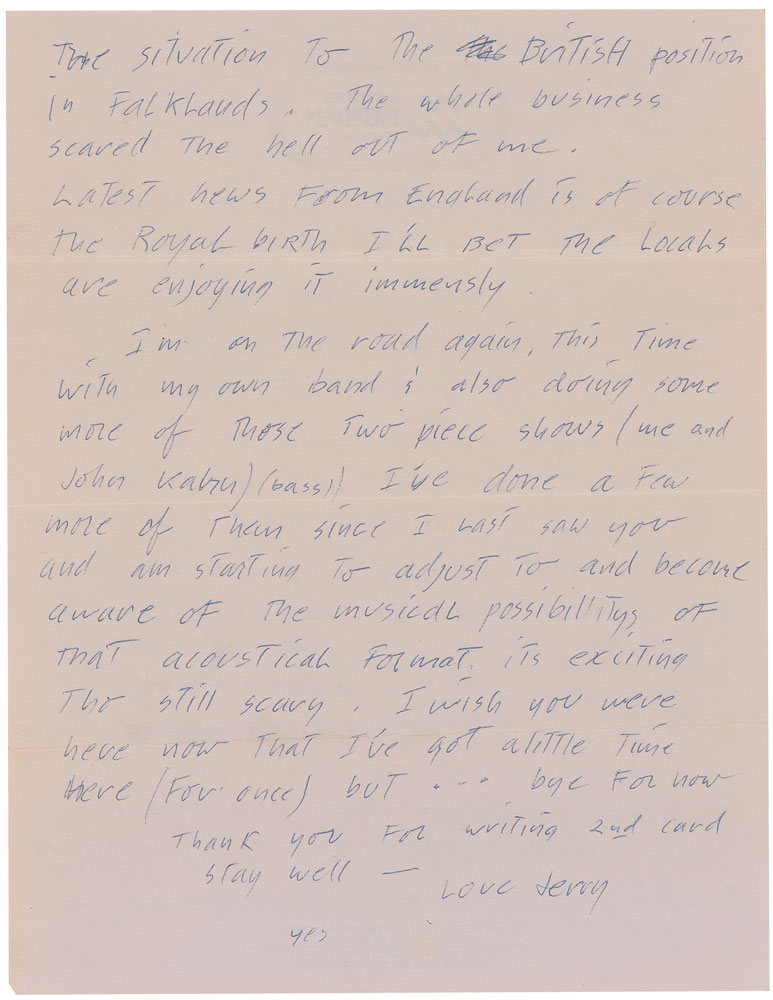 The situation to the British position
in Falklands. The whole business
scared the hell out of me.
Latest news from England is of course
the Royal birth I'll bet the locals
are enjoying it immensly.
I'm on the road again, this time
with my own band & also doing some
more of those two piece shows (me and
John Kahn) (bass)) I've done a few
more of them since I last saw you
and am starting to adjust to and become
aware of the musical possibilitys of
that acoustical format. its exciting
Tho still scary. I wish you were
here now that I've got alittle time
Here (For once) but .... bye for now
Thank you for writing 2nd card
stay well — Love Jerry
yes